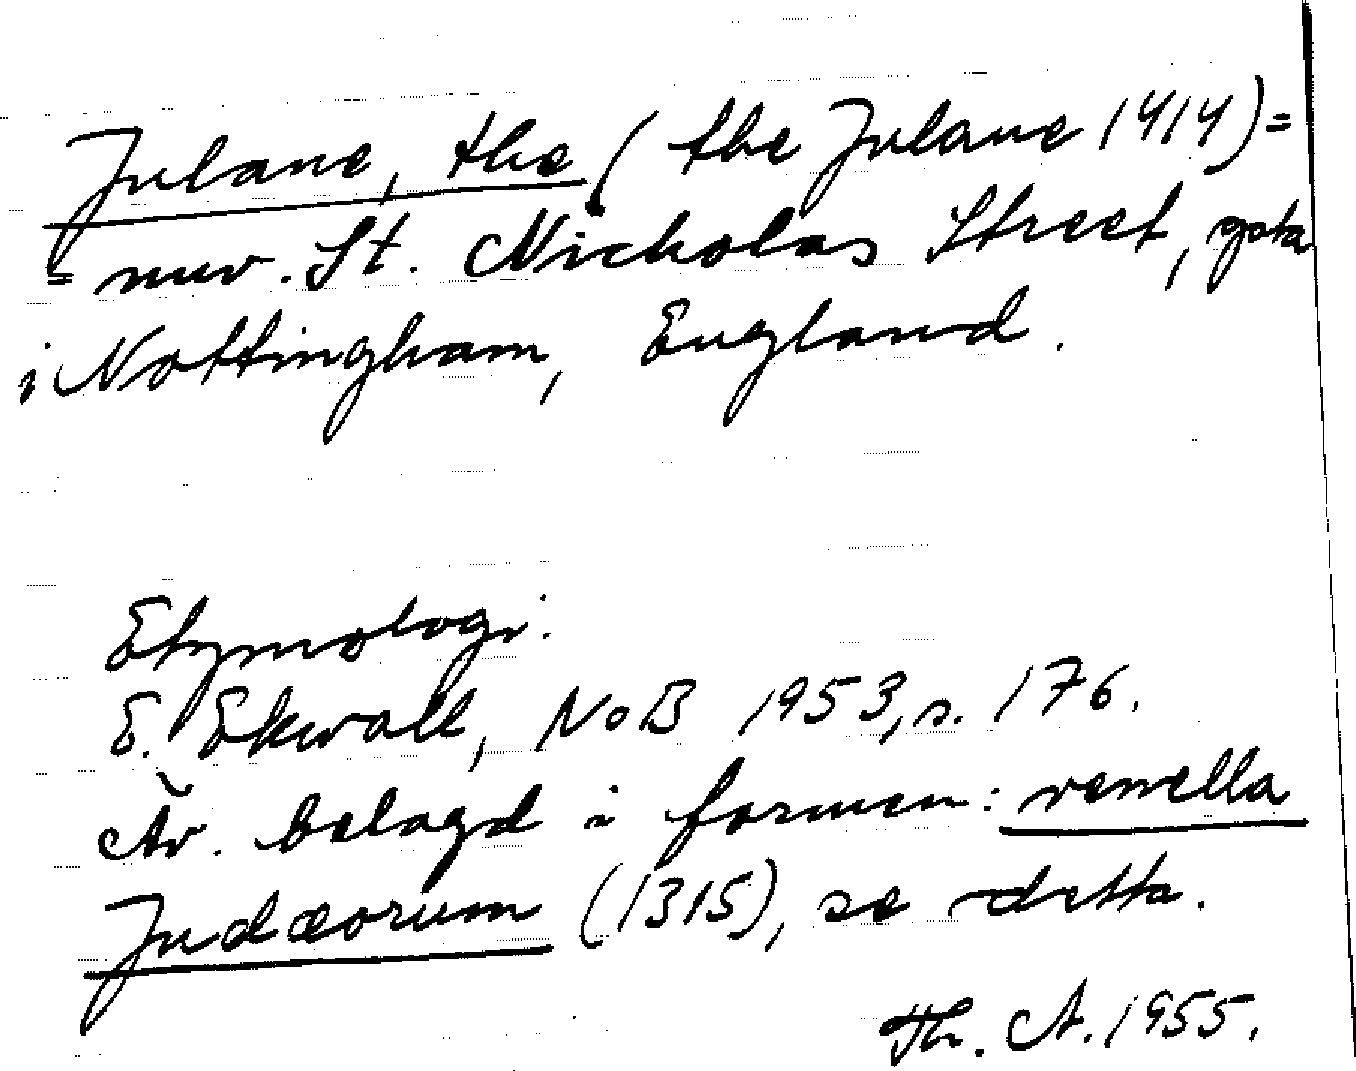 Julane, the (the Julane 1414) =
= nuv. St. Nicholas Street, gata
i Nottingham, England.
Etymologi:
E. Ekwall, NoB 1953, s. 176.
Äv. belagd i formen: venella
Judæorum (1315), se detta.
Th. A. 1955.